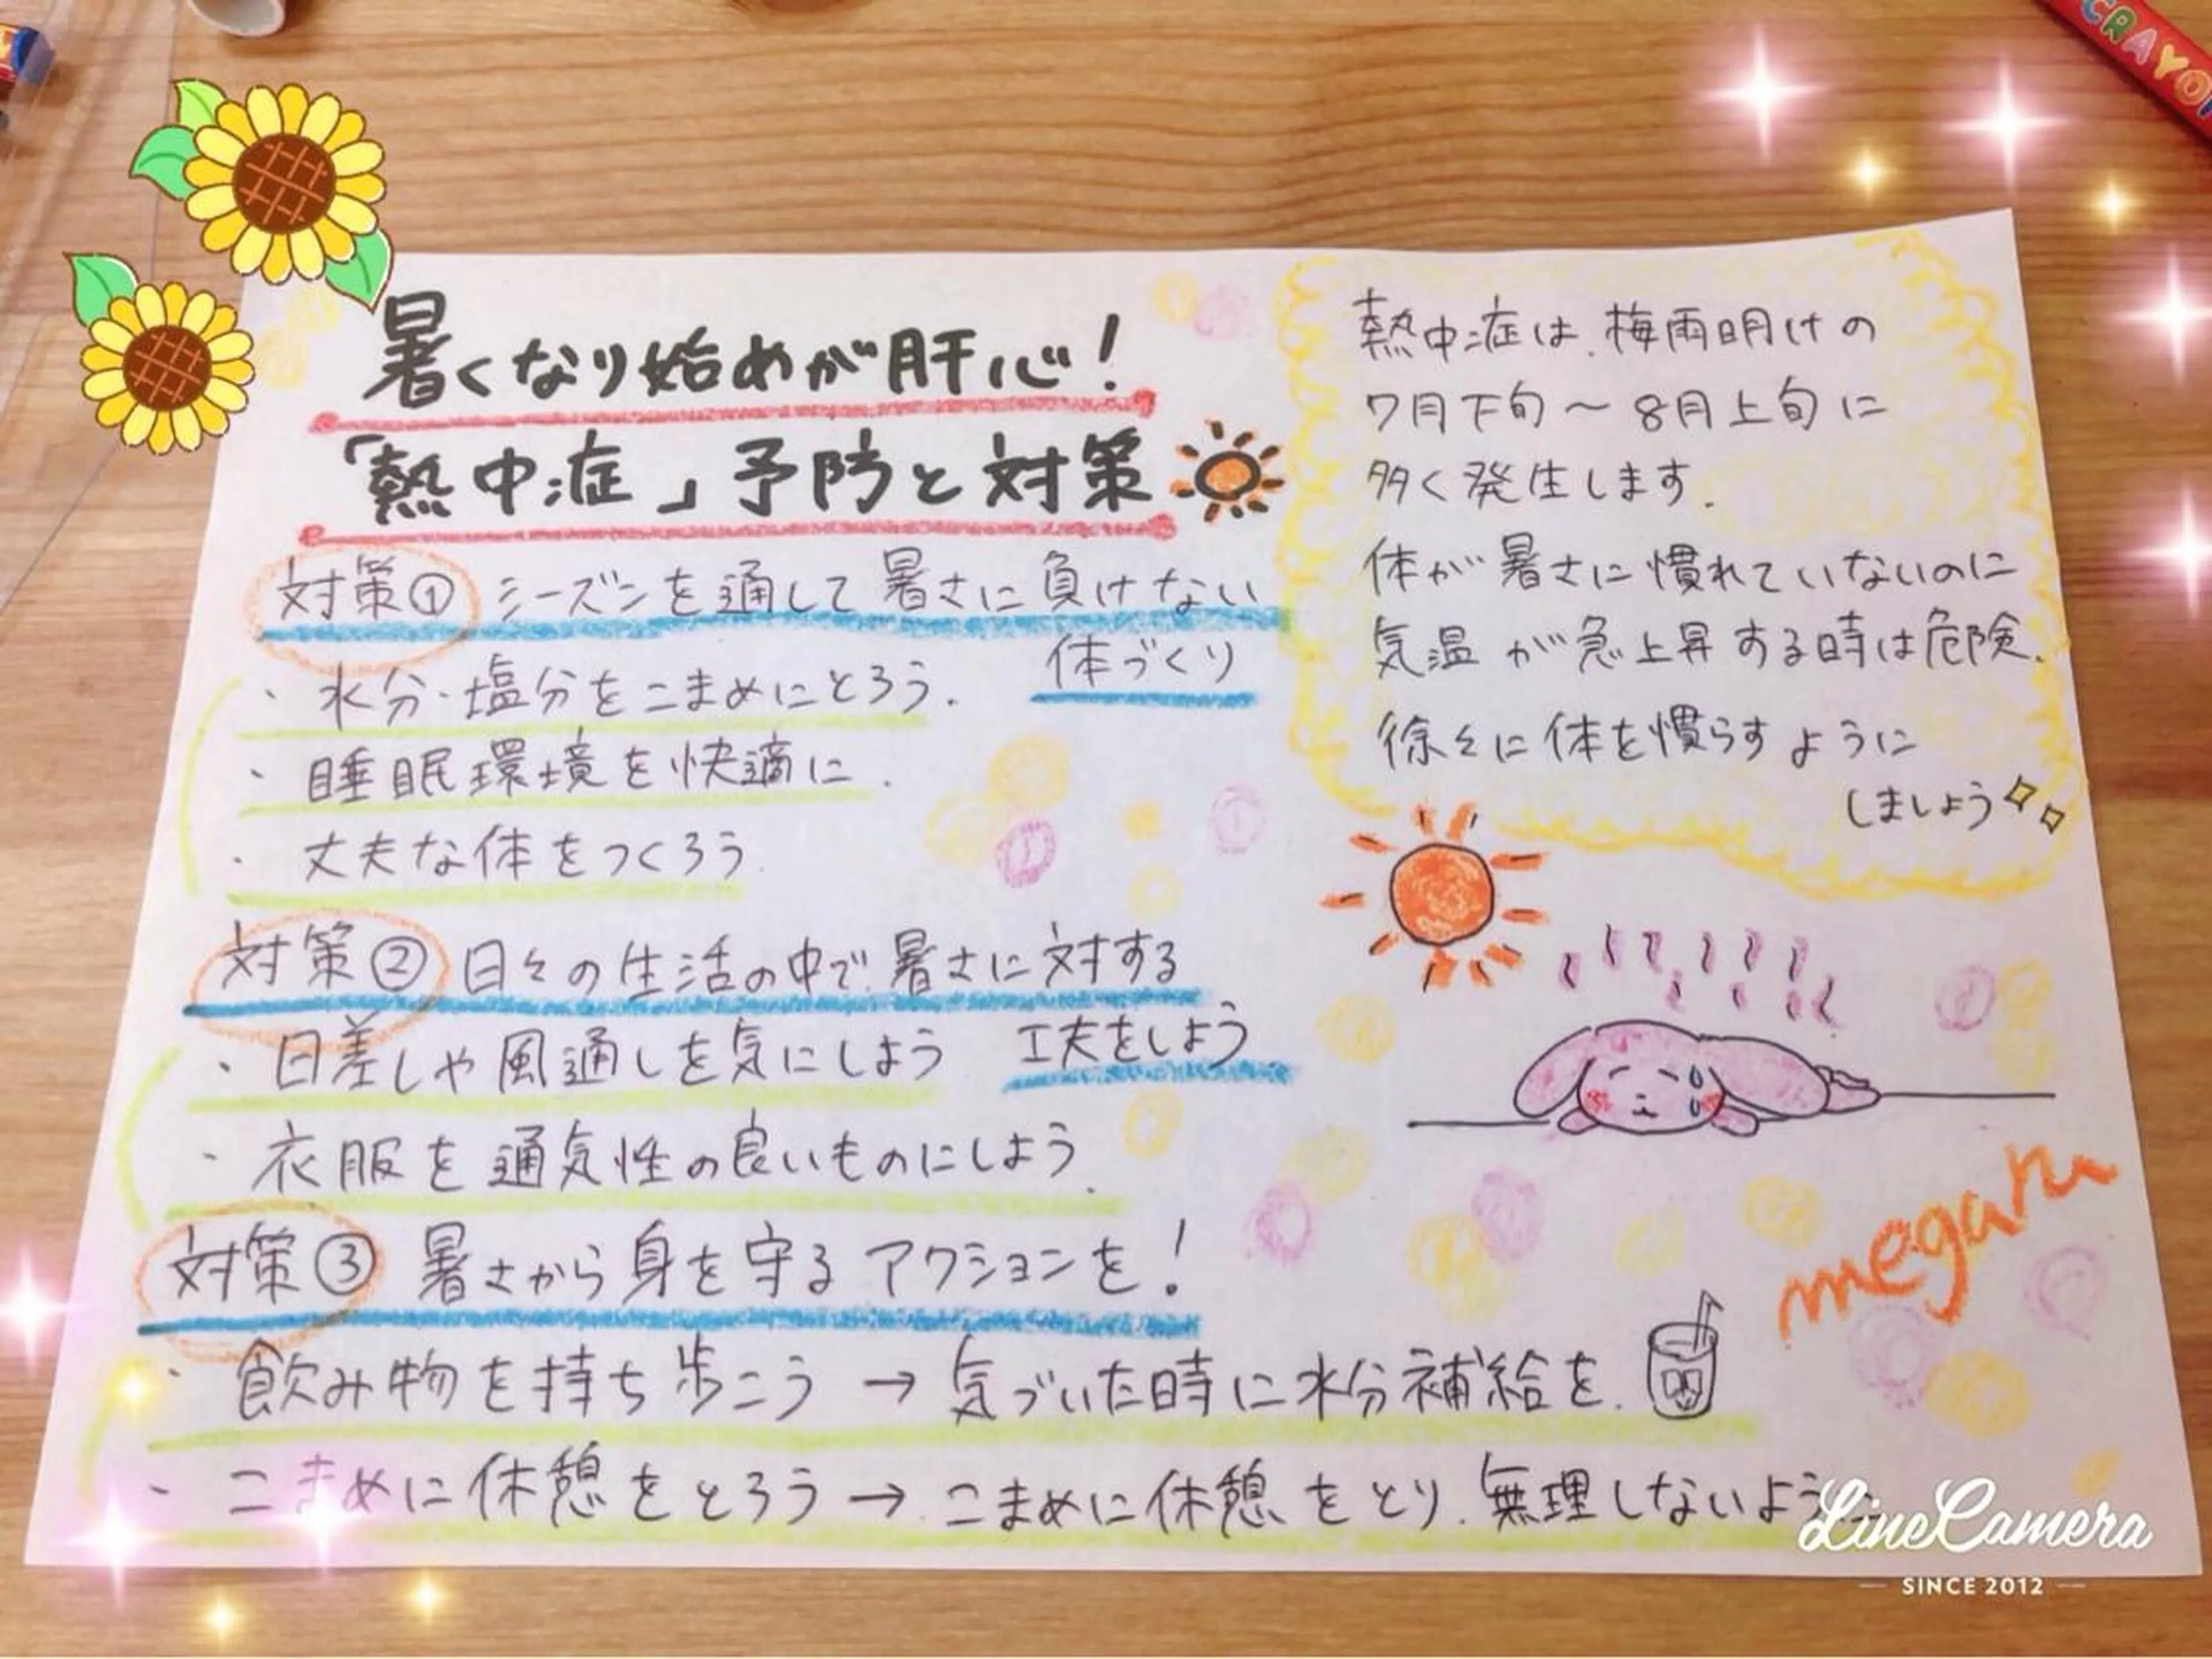 暑くなり始めが肝心!
「熱中症」予防と対策
対策① シーズンを通して暑さに負けない
体づくり
・水分・塩分をこまめにとろう.
・睡眠環境を快適に.
・丈夫な体をつくろう.
対策② 日々の生活の中で、暑さに対する
工夫をしよう
・日差しや風通しを気にしよう
・衣服を通気性の良いものにしよう.
対策③ 暑さから身を守るアクションを!
・飲み物を持ち歩こう→気づいた時に水分補給を.
・こまめに休憩をとろう→こまめに休憩をとり、無理しないよう
熱中症は、梅雨明けの
7月下旬〜8月上旬に
多く発生します.
体が暑さに慣れていないのに
気温が急上昇する時は危険.
徐々に体を慣らすように
しましょう
megaru
CRAYO
LineCamera
SINCE 2012